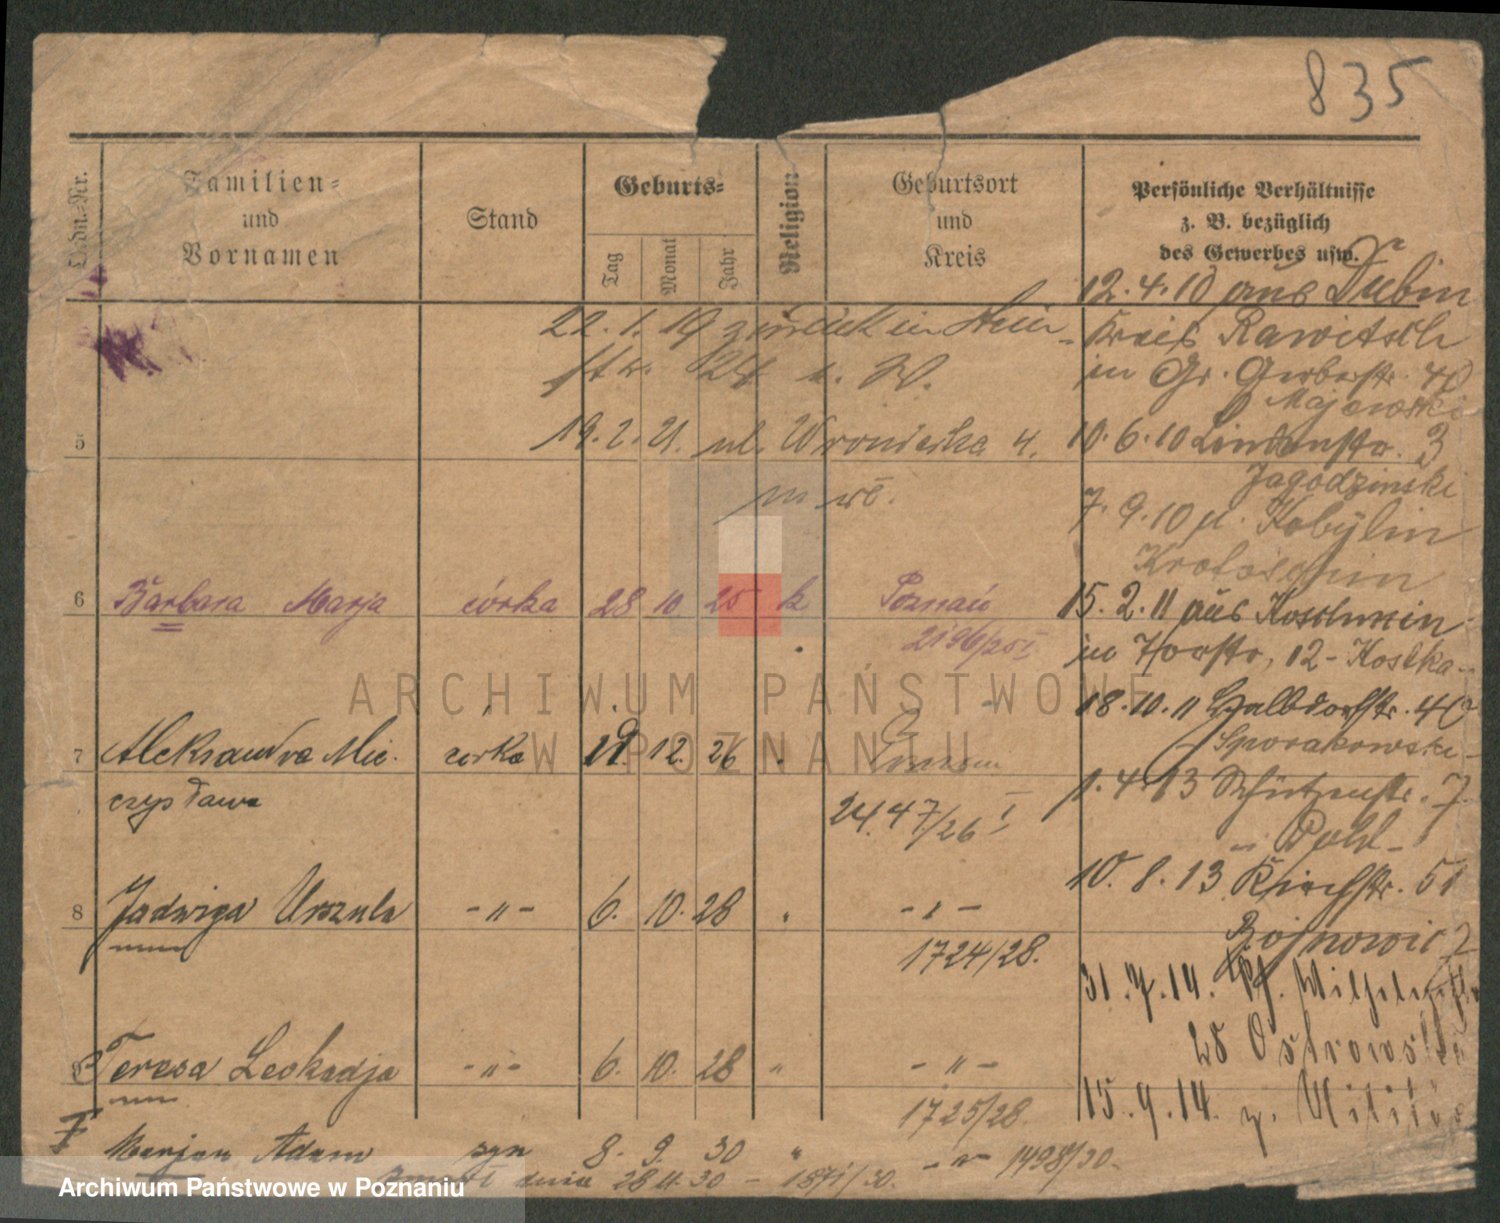 835
Lfdn.-Nr.
Familien-
und
Vornamen
Stand
Geburts-
Tag
Monat
Jahr
Religion
Geburtsort
und
Kreis
Persönliche Verhältnisse
z. B. bezüglich
des Gewerbes usw.
12.4.10 aus Dubin
22.1.19 zurück in
Kreis Rawitsch
24 u. W.
in Gr. Gerberstr. 40
Majewski
5
19.2.21 ul. Wroniecka 4.
10.6.10 Lindenstr. 3
Jagodzinski
7.9.10 n. Kobylin
Krotoschin
6 Barbara Marja córka 28 10 25 k Poznań
2196/25 I
15.2.11 aus Koschmin
in Horstr. 12 - Kostka -
18.10.11 Halbdorfstr. 40
- Sporakowski -
7 Aleksandra Mie- córka 19. 12. 26 "
czysława
2447/26 I
1.4.13 Schützenstr. 7
- Pohl -
10.8.13 Kirchstr. 51
8 Jadwiga Urszula -"- 6. 10. 28 " -"-
1724/28.
Bojnowicz
31.7.14. Wilhelmstr.
28 Ostrowski
9 Teresa Leokadja -"- 6. 10. 28 " -"-
1725/28.
15.9.14. z. Militär
Marjan Adam syn 8. 9. 30 " -"- 1498/30.
zmarł dnia 28.11.30 - 1871/30.
ARCHIWUM PAŃSTWOWE
W POZNANIU
Archiwum Państwowe w Poznaniu